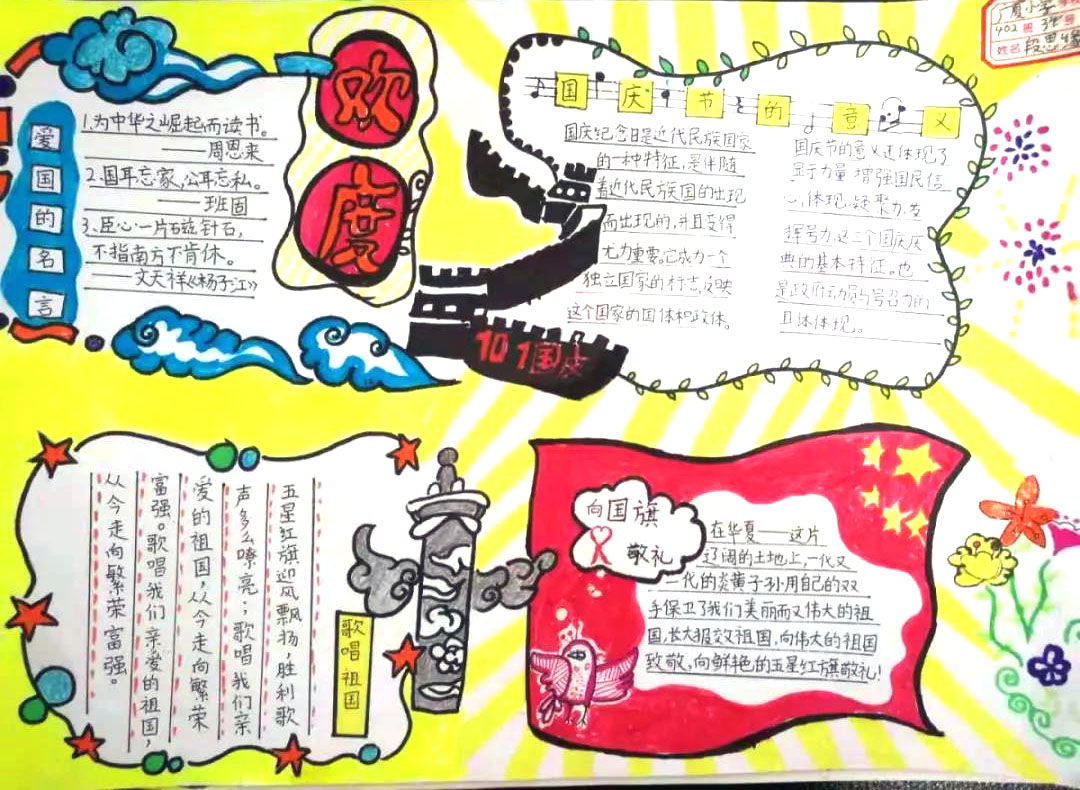 广厦小学
402班 34号
姓名 段思
爱国的名言
1.为中华之崛起而读书。
——周恩来
2.国耳忘家,公耳忘私。
——班固
3.臣心一片磁针石,
不指南方不肯休。
——文天祥《杨子江》
欢度
101国庆
国庆节的意义
国庆纪念日是近代民族国家
的一种特征,是伴随
着近代民族国的出现
而出现的,并且变得
尤为重要。它成为一个
独立国家的标志,反映
这个国家的国体和政体。
国庆节的意义还体现了
显示力量 增强国民信
心,体现凝聚力,发
挥号力,这三个国庆庆
典的基本特征。也
是政府动员与号召力的
具体体现。
歌唱祖国
五星红旗迎风飘扬,胜利歌
声多么嘹亮;歌唱我们亲
爱的祖国,从今走向繁荣
富强。歌唱我们亲爱的祖国,
从今走向繁荣富强。
向国旗
敬礼
在华夏——这片
辽阔的土地上,一代又
一代的炎黄子孙用自己的双
手保卫了我们美丽而又伟大的祖
国,长大报效祖国,向伟大的祖国
致敬,向鲜艳的五星红旗敬礼!